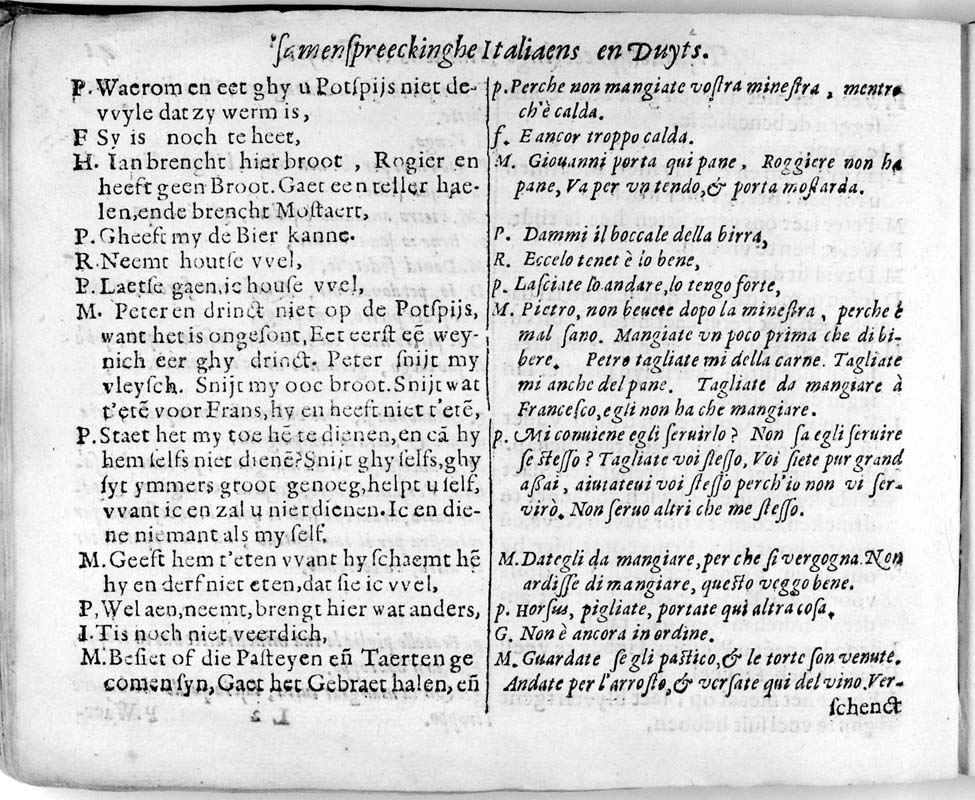 ſamenſpreeckinghe Italiaens en Duyts.
P. Waerom en eet ghy u Potſpijs niet de-
vvyle dat zy werm is,
F Sy is noch te heet,
H. Ian brencht hier broot , Rogier en
heeft geen Broot. Gaet een teller hae-
len, ende brencht Moſtaert,
P. Gheeft my de Bier kanne.
R. Neemt houtſe vvel,
P. Laetſe gaen, ic houſe vvel,
M. Peter en drinct niet op de Potſpijs,
want het is ongeſont, Eet eerſt eē wey-
nich eer ghy drinct. Peter ſnijt my
vleyſch. Snijt my ooc broot. Snijt wat
t'etē voor Frans, hy en heeft niet t'etē,
P. Staet het my toe hē te dienen, en cā hy
hem ſelfs niet dienē? Snijt ghy ſelfs, ghy
ſyt ymmers groot genoeg, helpt u ſelf,
vvant ic en zal u niet dienen. Ic en die-
ne niemant als my ſelf.
M. Geeft hem t'eten vvant hy ſchaemt hē
hy en derf niet eten, dat ſie ic vvel,
P, Wel aen, neemt, brengt hier wat anders,
I. Tis noch niet veerdich,
M. Beſiet of die Paſteyen eñ Taerten ge
comen ſyn, Gaet het Gebraet halen, eñ
p. Perche non mangiate voſtra mineſtra , mentre
ch'è calda.
f. E ancor troppo calda.
M. Giouanni porta qui pane. Roggiere non ha
pane, Va per vn tendo, & porta moſtarda.
P. Dammi il boccale della birra,
R. Eccelo tenet è lo bene,
p. Laſciate lo andare, lo tengo forte,
M. Pietro, non beuete dopo la mineſtra , perche è
mal ſano. Mangiate vn poco prima che di bi-
bere. Petro tagliate mi della carne. Tagliate
mi anche del pane. Tagliate da mangiare à
Franceſco, egli non ha che mangiare.
p. Mi conuiene egli ſeruirlo? Non ſa egli ſeruire
ſe ſteſſo? Tagliate voi ſteſſo, Voi ſiete pur grand
aßai, aiutateui voi ſteſſo perch'io non vi ſer-
virò. Non ſeruo altri che me ſteſſo.
M. Dategli da mangiare, per che ſi vergogna. Non
ardiſſe di mangiare, queſto veggo bene.
p. Horſus, pigliate, portate qui altra coſa.
G. Non è ancora in ordine.
M. Guardate ſe gli paſtico, & le torte ſon venute.
Andate per l'arroſto, & verſate qui del vino. Ver-
ſchenct